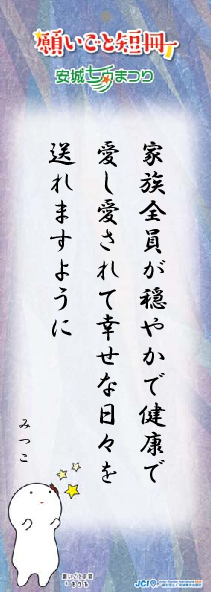 願いごと短冊
安城七夕まつり
家族全員が穏やかで健康で
愛し愛されて幸せな日々を
送れますように
みつこ
JCI